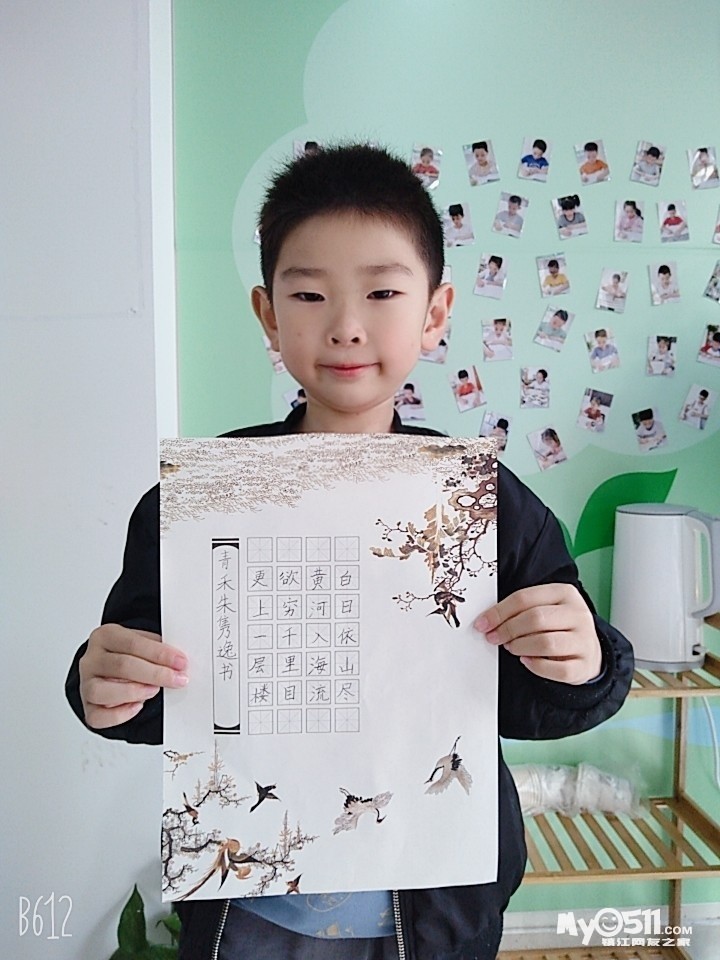 白日依山尽
黄河入海流
欲穷千里目
更上一层楼
青禾朱隽逸书
B612
My0511.COM
镇江网友之家